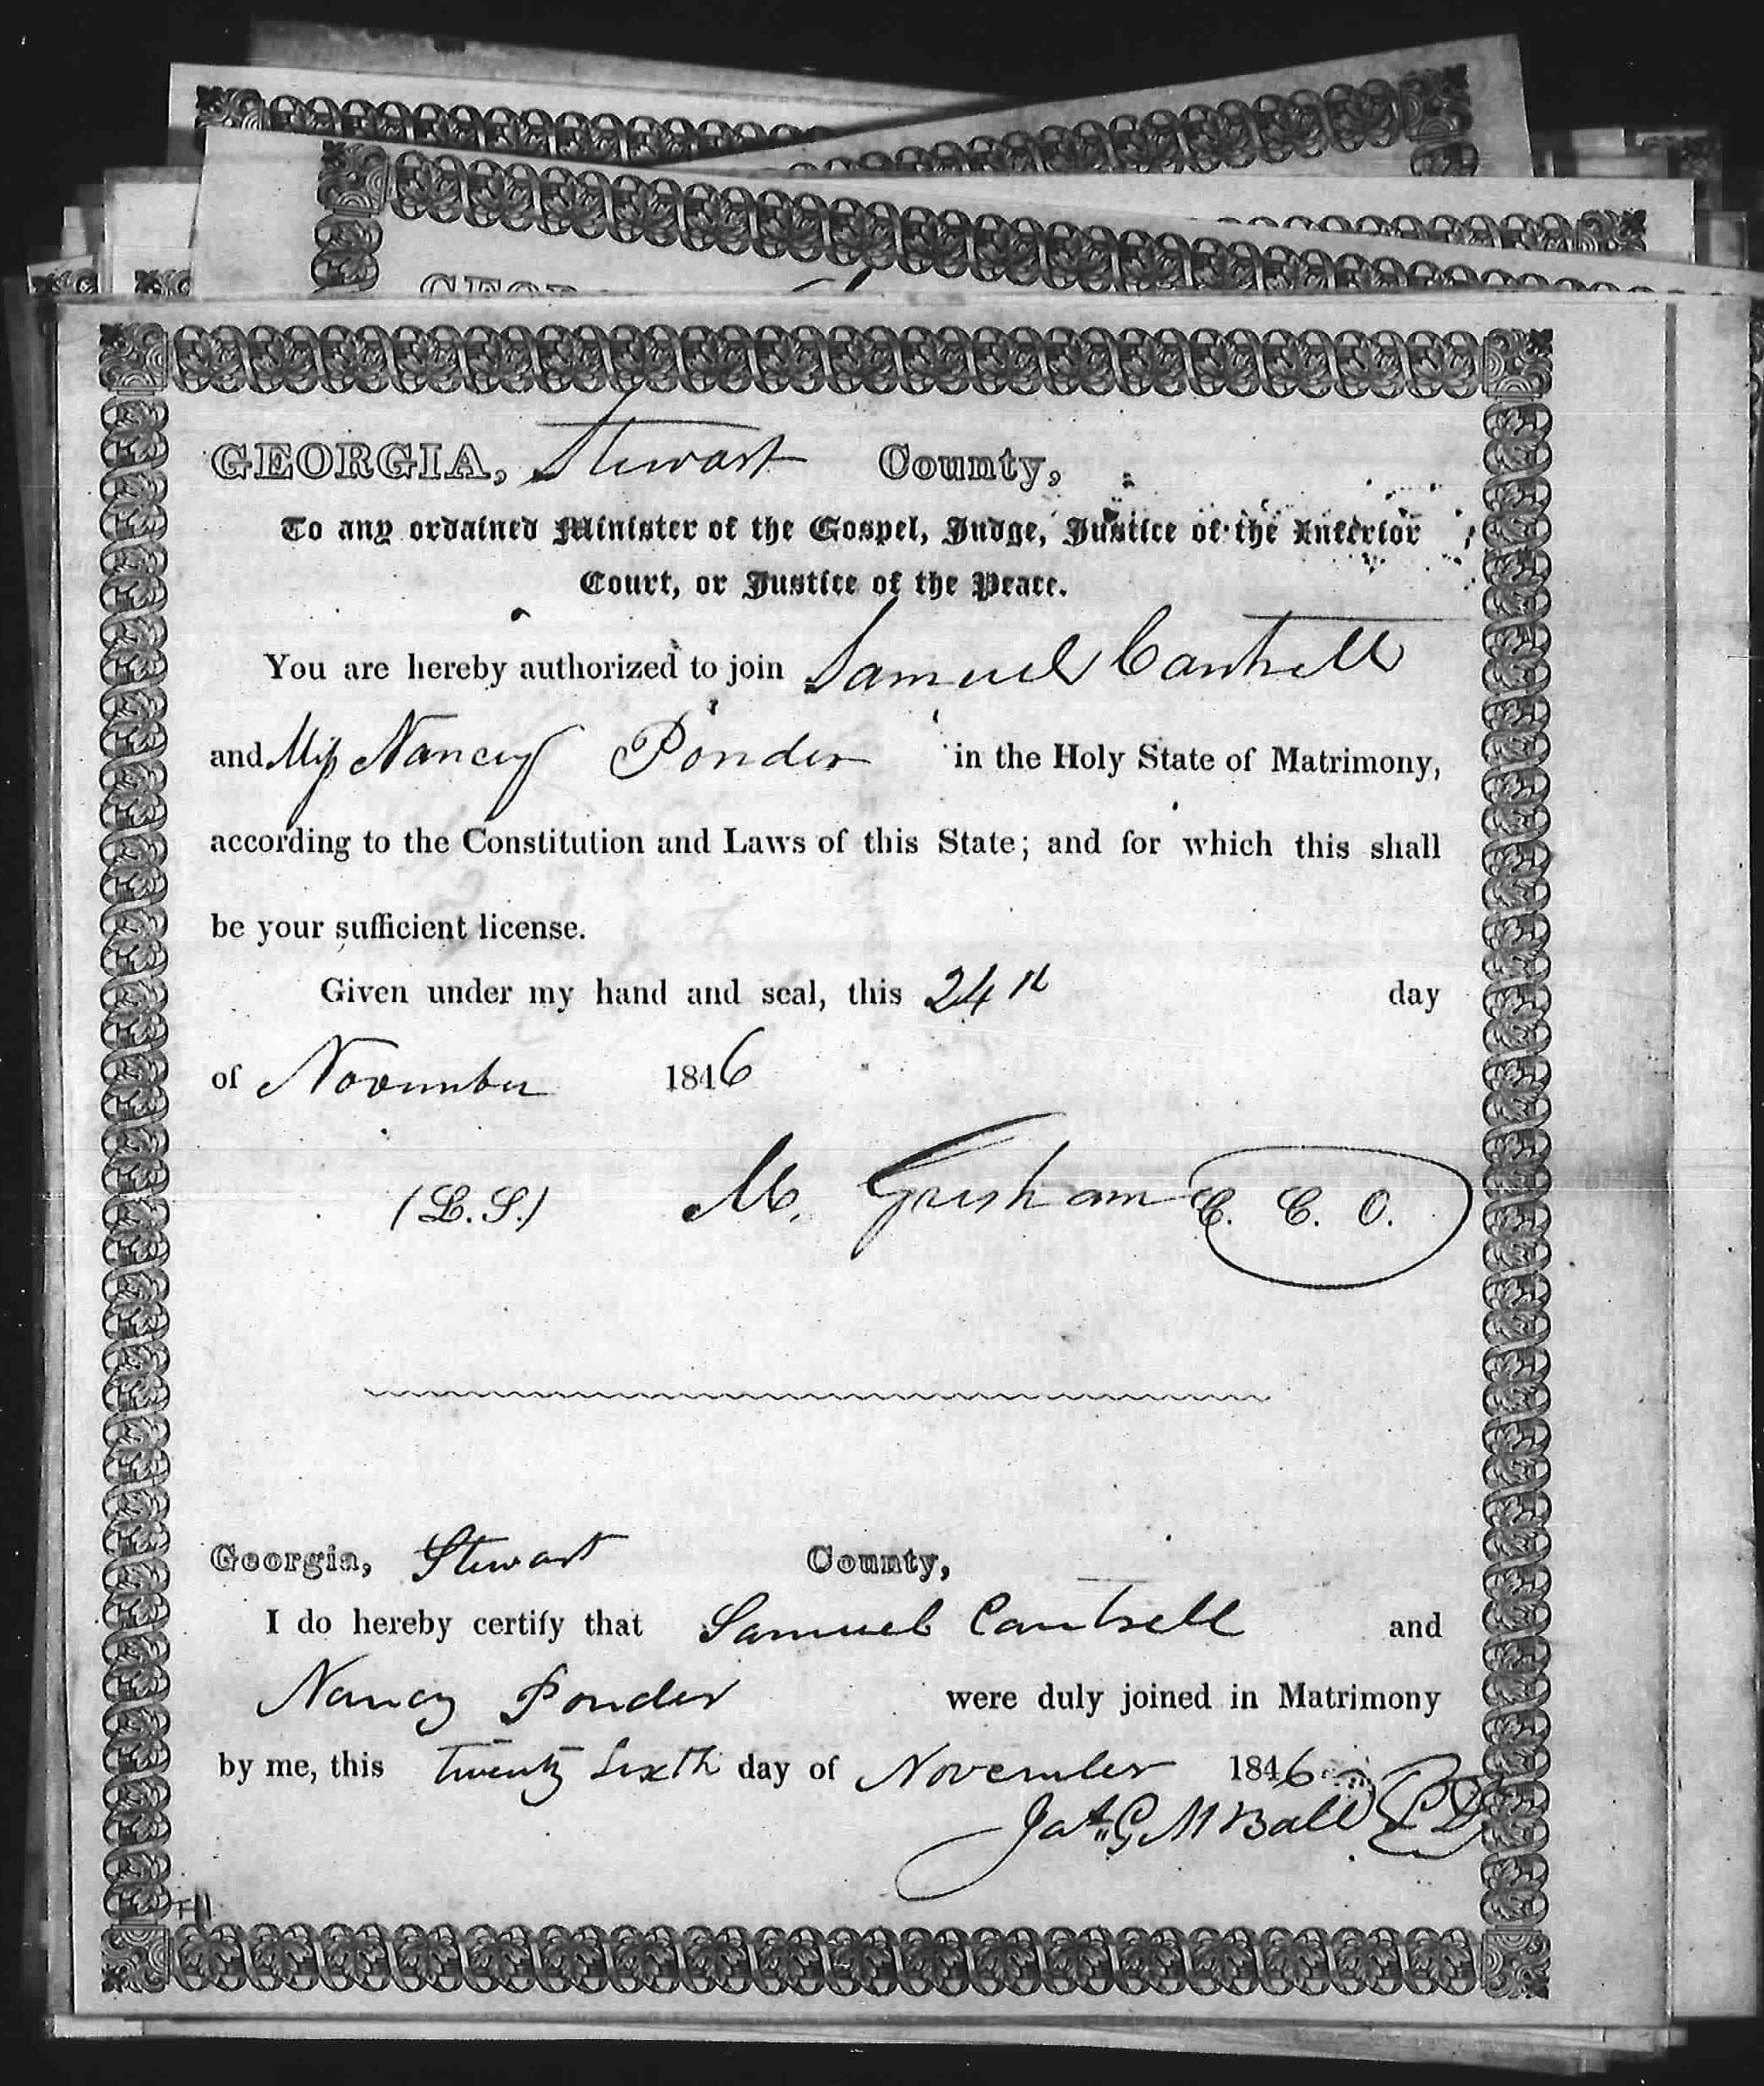 GEORGIA, Stewart County,
To any ordained Minister of the Gospel, Judge, Justice of the Inferior
Court, or Justice of the Peace.
You are hereby authorized to join Samuel Cantrell
and Miss Nancy Ponder in the Holy State of Matrimony,
according to the Constitution and Laws of this State; and for which this shall
be your sufficient license.
Given under my hand and seal, this 24th day
of November 1846
(L.S.) M. Gresham C. C. O.
Georgia, Stewart County,
I do hereby certify that Samuel Cantrell and
Nancy Ponder were duly joined in Matrimony
by me, this twenty Sixth day of November 1846
Jas. G. M Ball